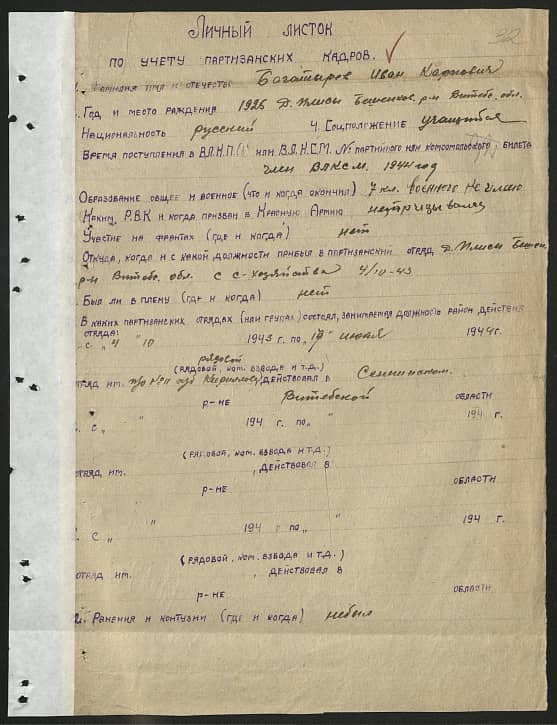 32
Личный листок
по учету партизанских кадров.
Фамилия имя и отчество Богатырев Иван Карпович
. Год и место раждения 1926 Д. Плисы Бешенков. р-н Витебс. обл.
Национальность русский 4. Соц.положение учащийся
Время поступления в В.К.П.(б) или В.Л.К.С.М. № партийного или комсомольского билета
член ВЛКСМ. 1944 год
Образование общее и военное (что и когда окончил) 7 кл. военного не имею
Каким, Р.В.К и когда призван в Красную Армию нетризывался
Участие на франтах (где и когда) нет
Откуда, когда и с какой должности прибыл в партизанский отряд Д. Плисы Бешен.
р-н Витебс. обл. с с-хозяйства 4/10-43
. Был ли в плену (где и когда) нет
В каких партизанских отрядах (или групах) состоял, занимаемая должность район, действия
отряда:
. с „ 4 " 10 1943 г. по „ " июля 1944 г.
рядовой
(рядовой, ком. взвода и т.д.)
отряд им. действовал в
р-не Витебской области
. с „ " 194 г. по „ " 194 г.
(рядовой, ком. взвода и т.д.)
отряд им. , действовал в
р-не области
. с „ " 194 г по „ " 194 г.
(рядовой, ком. взвода и т.д.)
отряд им. , действовал в
р-не области
. Ранения и контузии (где и когда) небыл